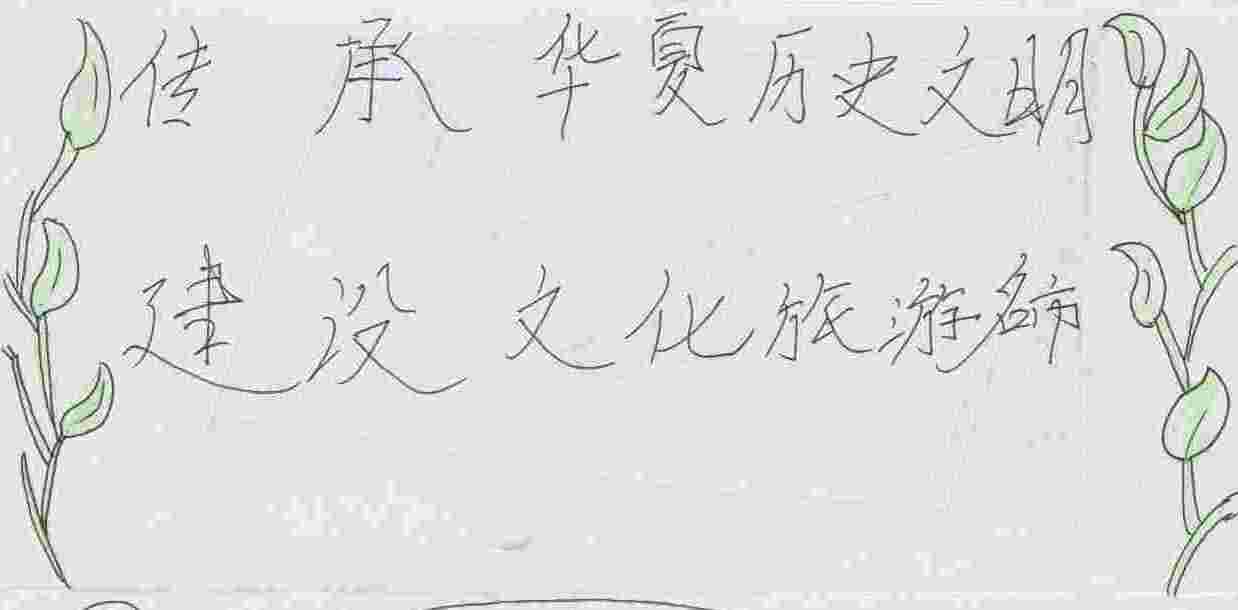 传承华夏历史文明
建设文化旅游名市